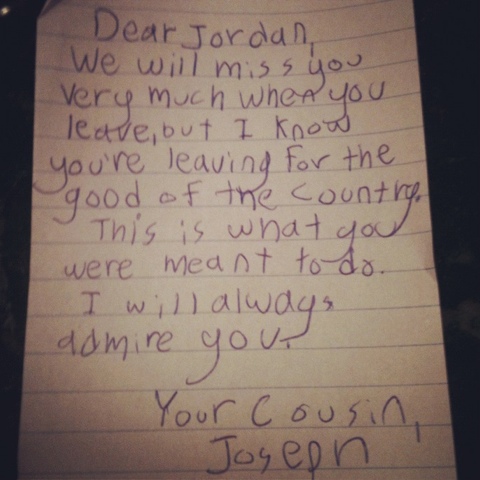 Dear Jordan,
We will miss you
very much when you
leave, but I know
you're leaving for the
good of the country.
This is what you
were meant to do.
I will always
admire you.
Your Cousin,
Joseph